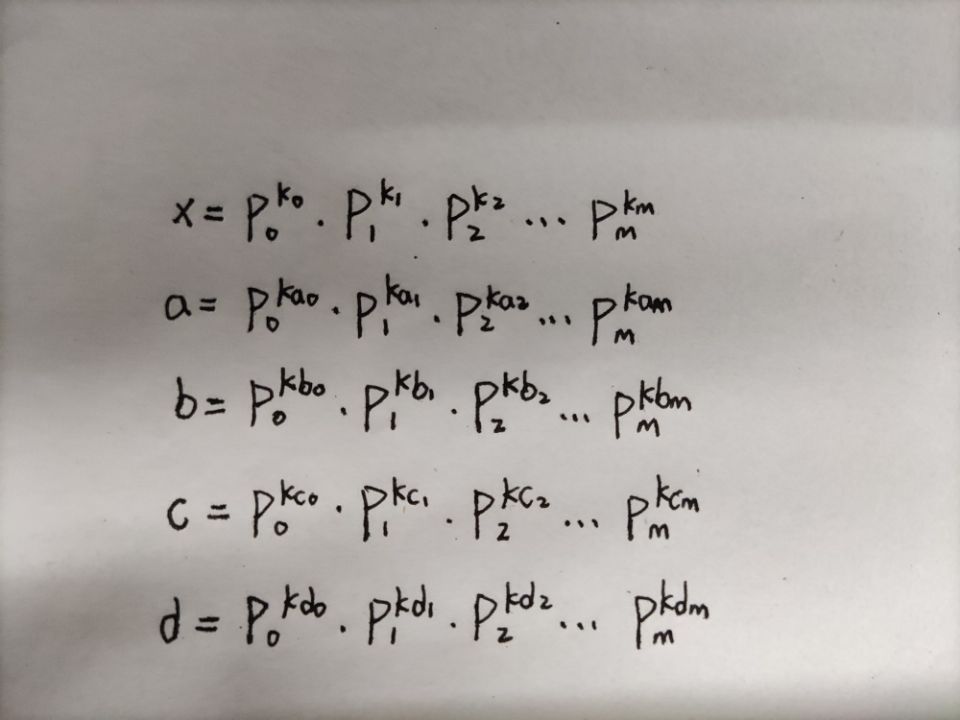 x = P₀^k₀ · P₁^k₁ · P₂^k₂ ... Pₘ^kₘ
a = P₀^ka₀ · P₁^ka₁ · P₂^ka₂ ... Pₘ^kaₘ
b = P₀^kb₀ · P₁^kb₁ · P₂^kb₂ ... Pₘ^kbₘ
c = P₀^kc₀ · P₁^kc₁ · P₂^kc₂ ... Pₘ^kcₘ
d = P₀^kd₀ · P₁^kd₁ · P₂^kd₂ ... Pₘ^kdₘ